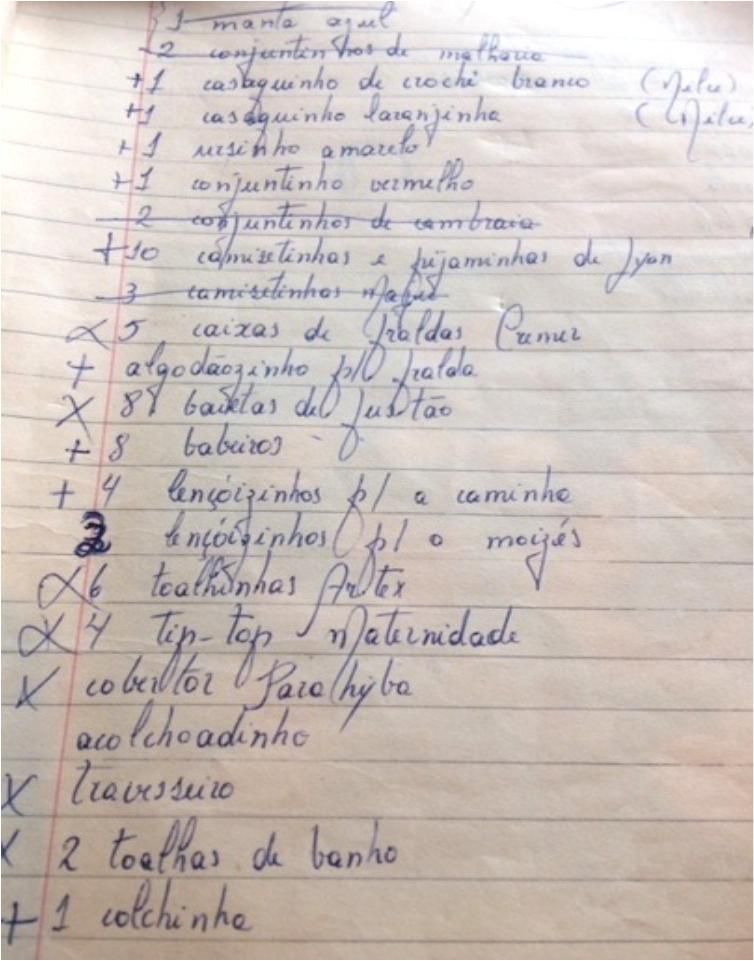 1 manta azul
2 conjuntinhos de malharia
+1 casaquinho de crochê branco (Nilce)
+1 casaquinho laranjinha (Nilce)
+1 ursinho amarelo
+1 conjuntinho vermelho
2 conjuntinhos de cambraia
+10 camisetinhas e pijaminhas de Lyon
3 camisetinhas
X 5 caixas de fraldas Cremer
+ algodãozinho p/ fralda
X 8 de fustão
+ 8 babeiros
+ 4 lençóizinhos p/ a caminha
lençóizinhos p/ o moizés
X 6 toalhinhas Artex
X 4 tip-top Maternidade
X cobertor Parahyba
acolchoadinho
X travesseiro
X 2 toalhas de banho
+ 1 colchinha